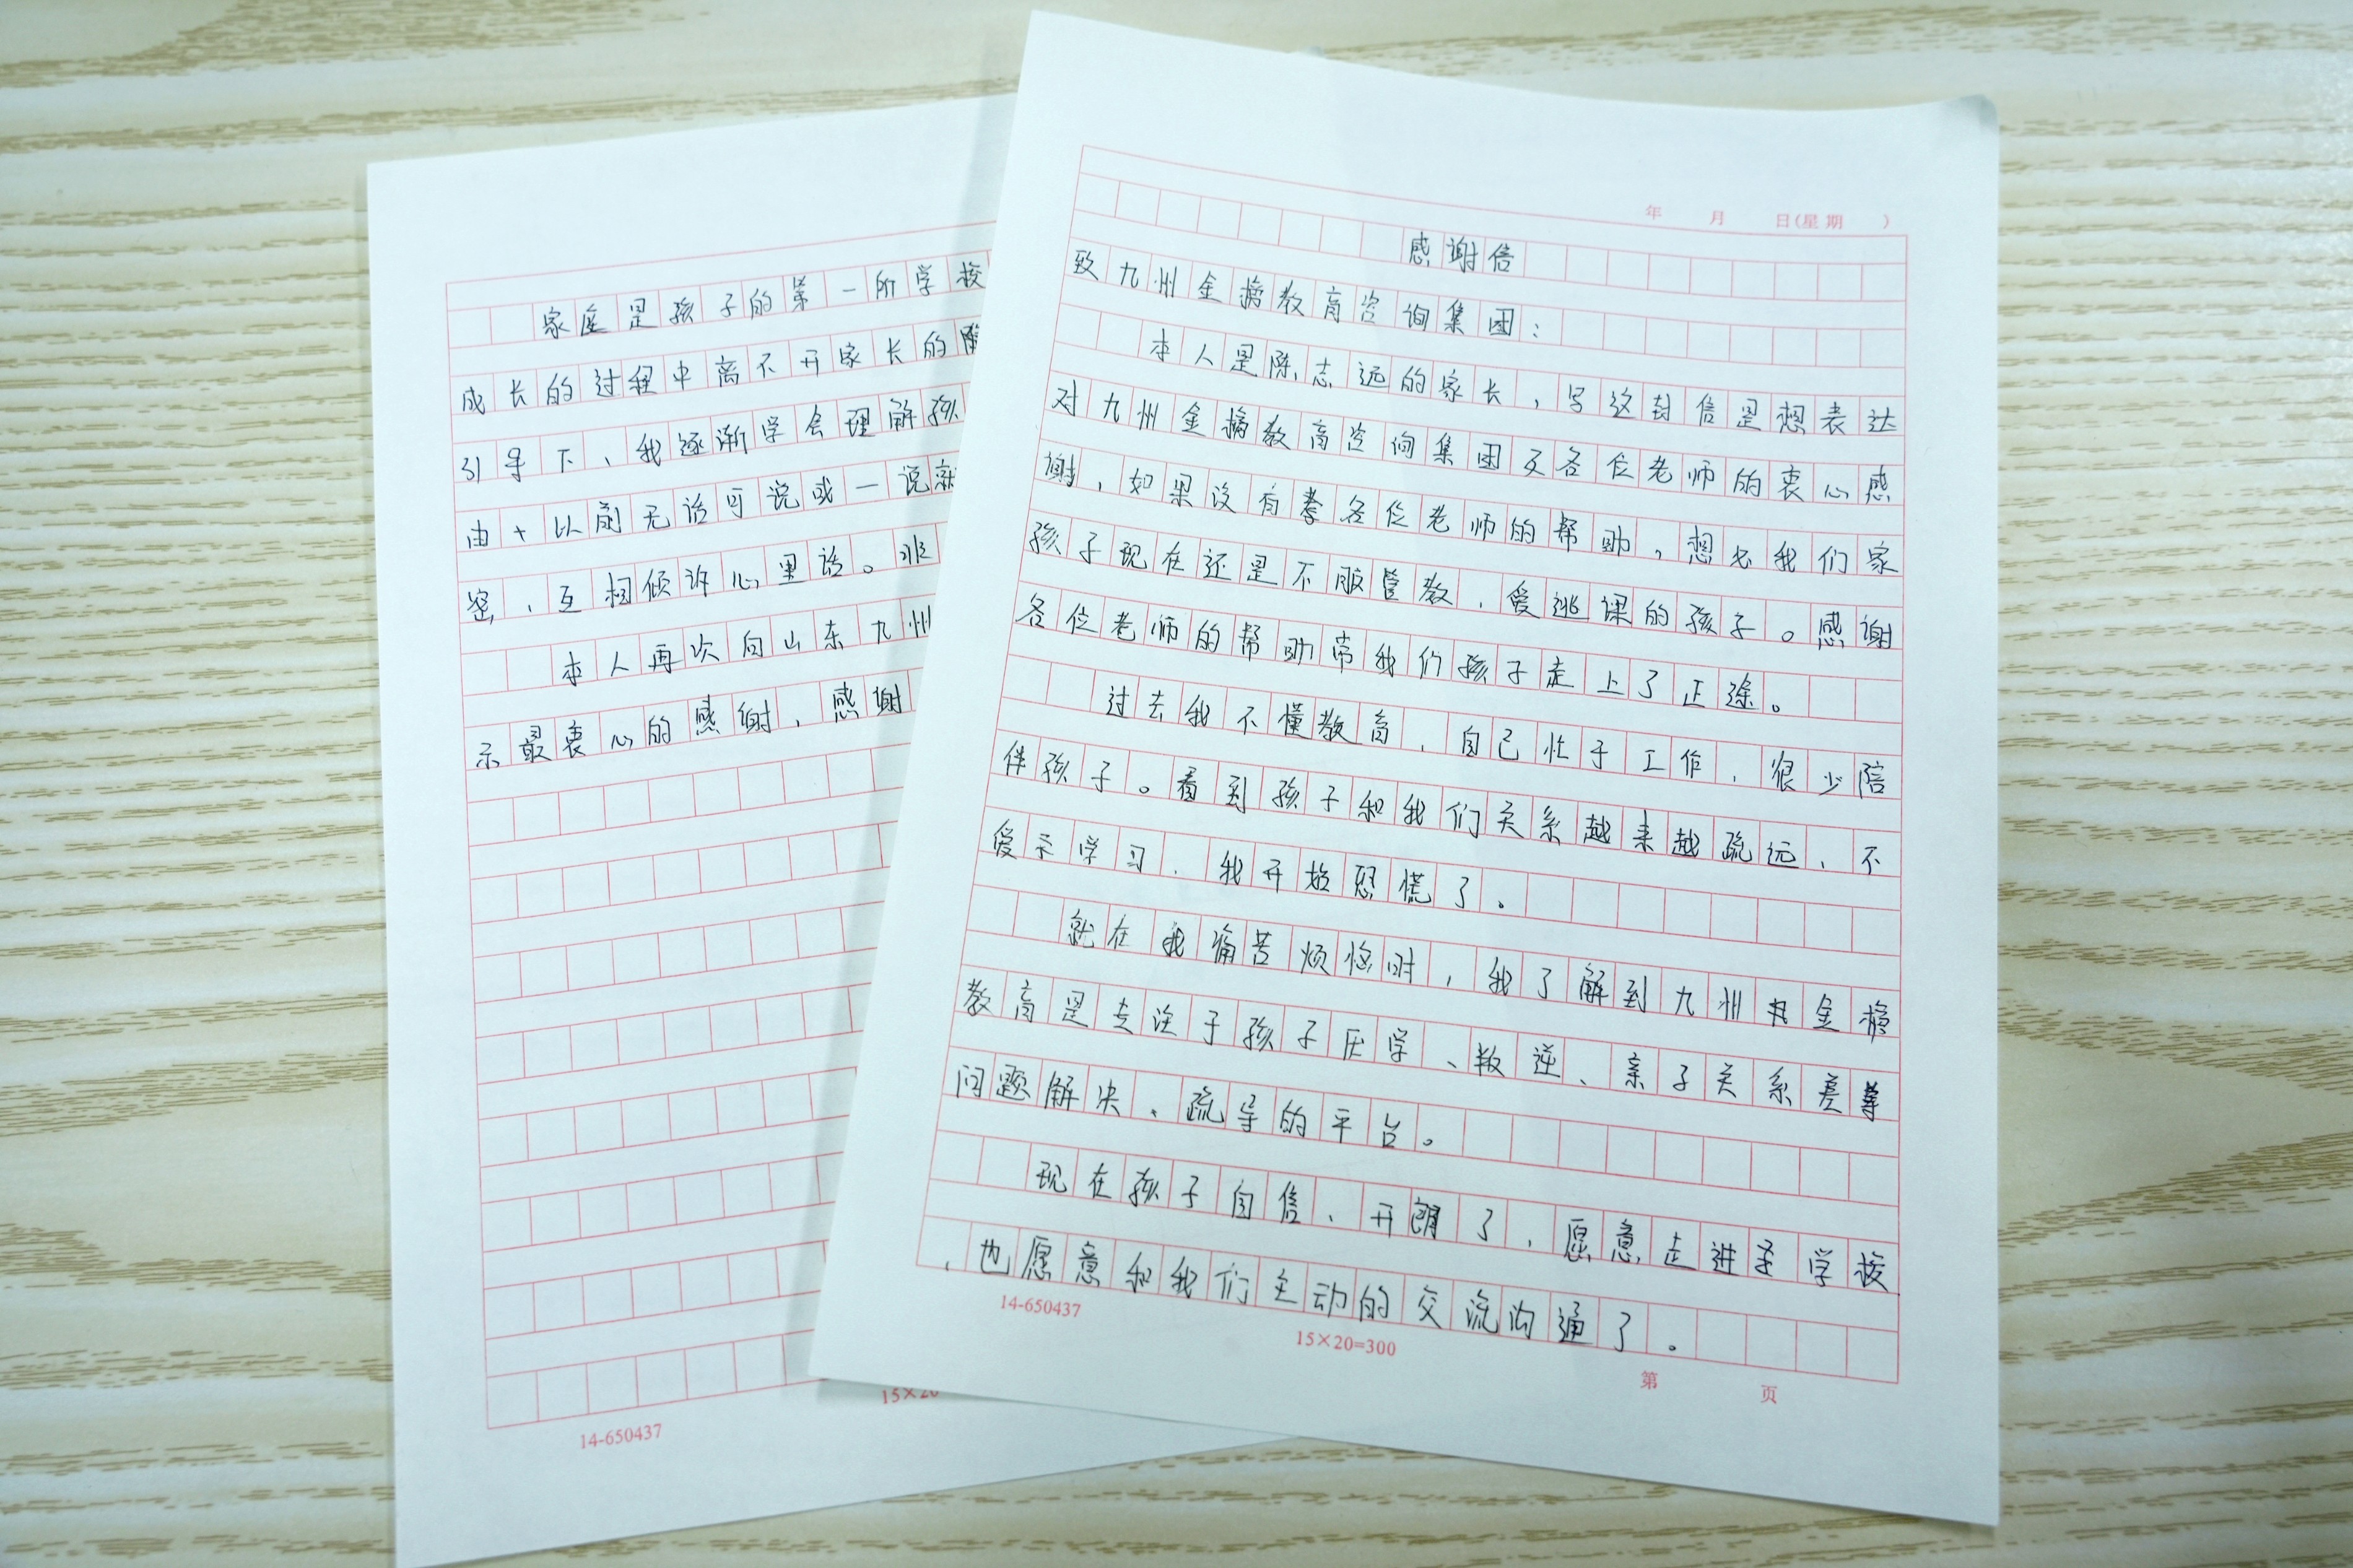 年 月 日(星期 )
感谢信
致九州金榜教育咨询集团:
本人是陈志远的家长,写这封信是想表达
对九州金榜教育咨询集团及各位老师的衷心感
谢,如果没有 各位老师的帮助,想必我们家
孩子现在还是不服管教,爱逃课的孩子。感谢
各位老师的帮助带我们孩子走上了正途。
过去我不懂教育,自己忙于工作,很少陪
伴孩子。看到孩子和我们关系越来越疏远,不
爱 学习,我开始恐慌了。
就在我痛苦烦恼时,我了解到九州 金榜
教育是专注于孩子厌学、叛逆、亲子关系差等
问题解决、疏导的平台。
现在孩子自信、开朗了,愿意走进 学校
,也愿意和我们主动的交流沟通了。
14-650437
15×20=300
第 页
家庭是孩子的第一所学校
成长的过程中离不开家长的陪
引导下,我逐渐学会理解孩
由 以前无话可说或一说就
密,互相倾诉心里话。
本人再次向山东九州
示最衷心的感谢,感谢
15×20
14-650437